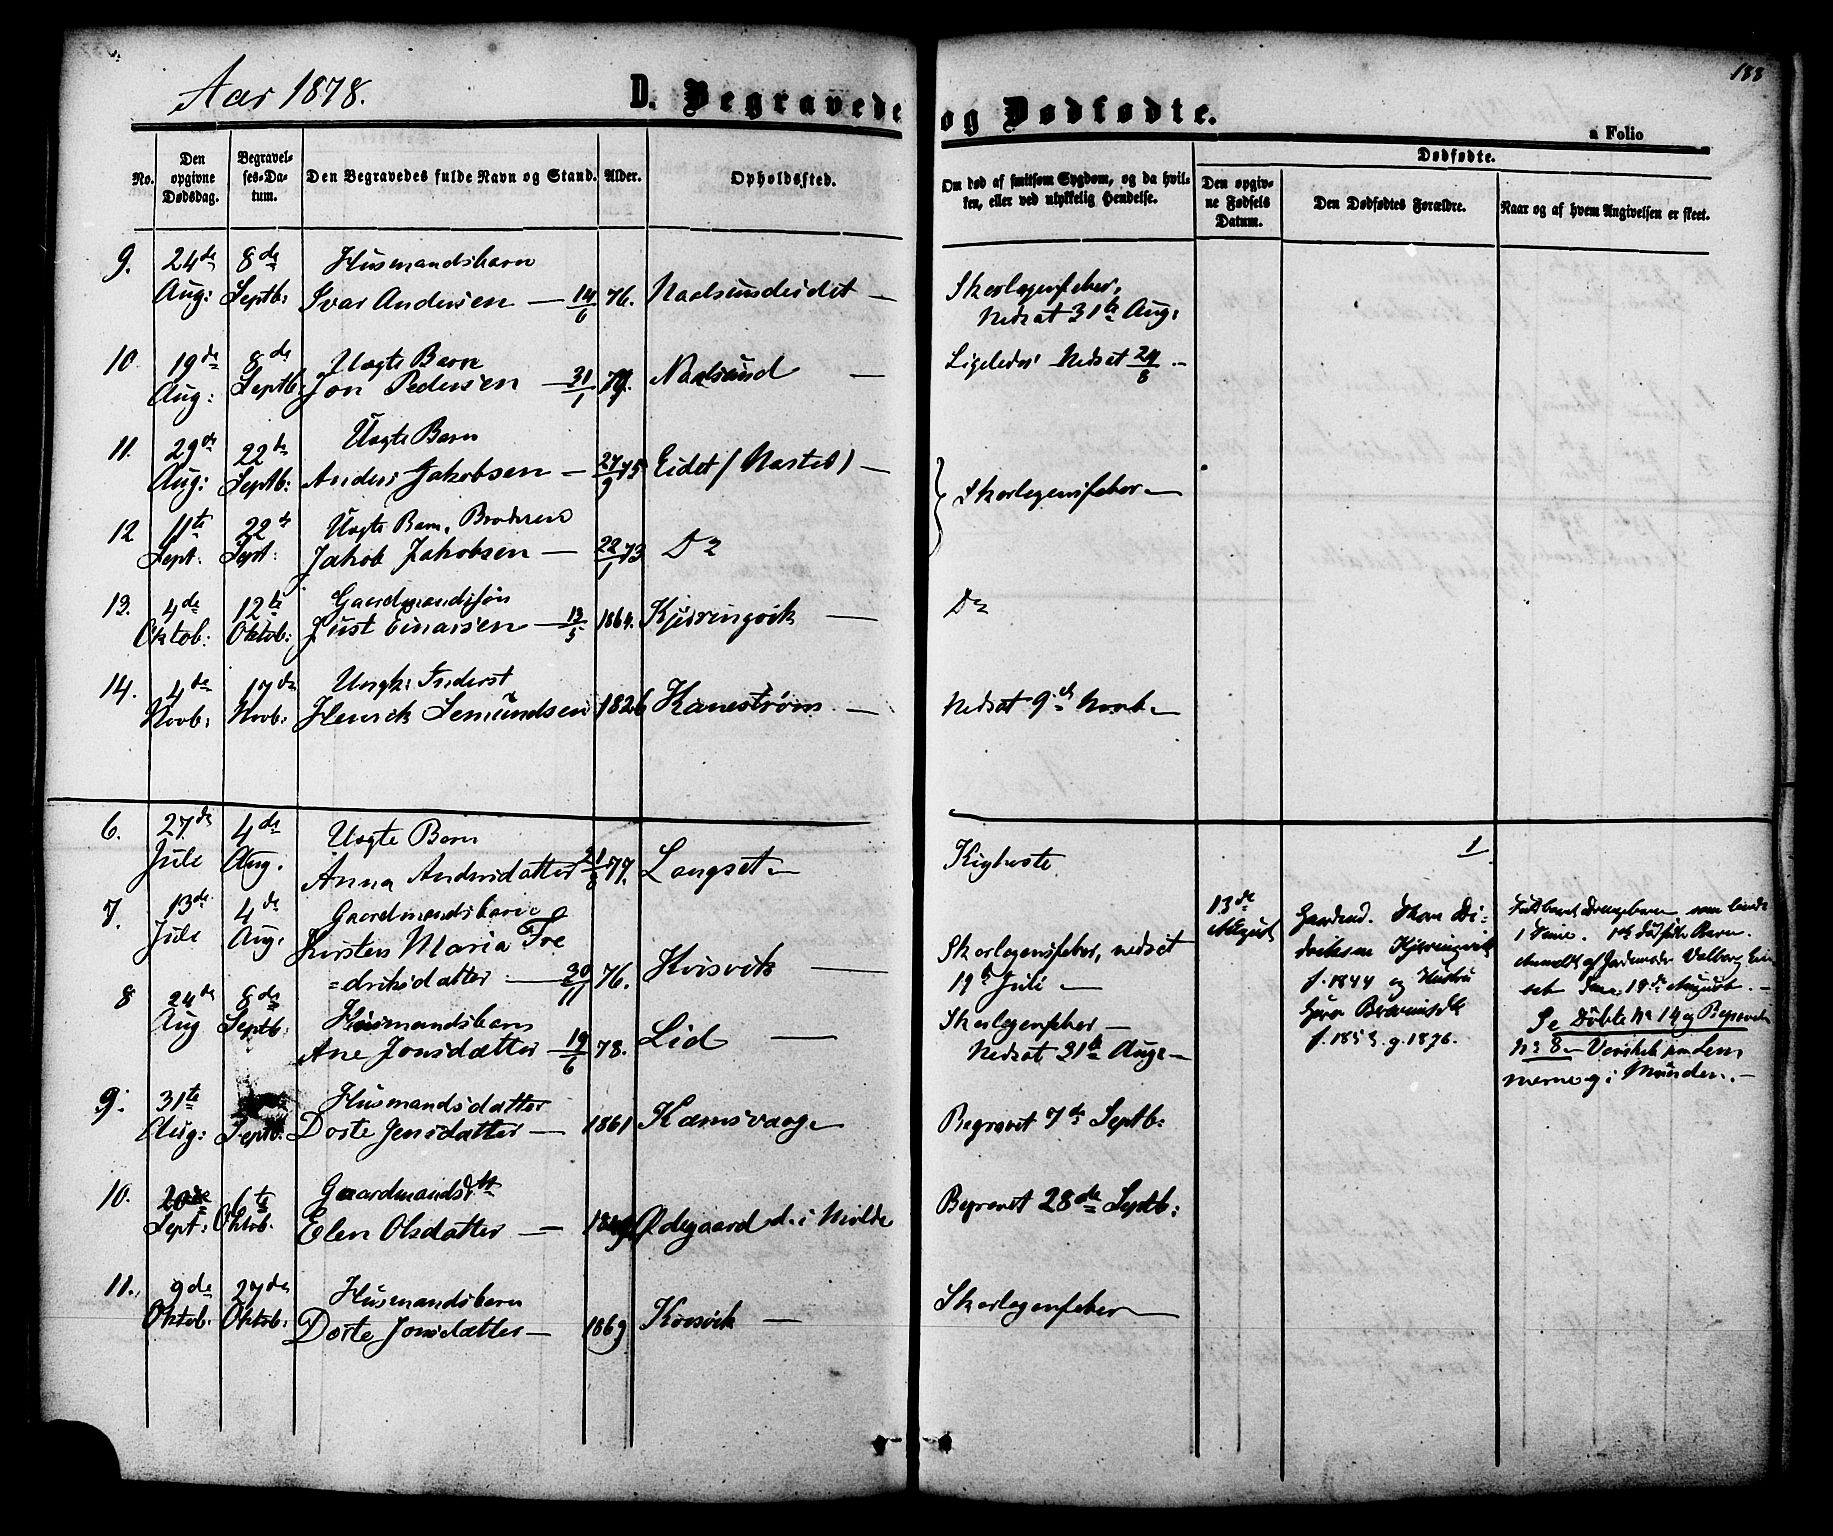 188
Aar 1878.
D. Begravede og Dødfødte.
a Folio
No.
Den opgivne Dødsdag.
Begravelses-Datum.
Den Begravedes fulde Navn og Stand.
Alder.
Opholdssted.
Om død af smitsom Sygdom, og da hvilken, eller ved ulykkelig Hendelse.
Dødfødte.
Den opgivne Fødsels Datum.
Den Dødfødtes Forældre.
Naar og af hvem Angivelsen er skeet.
9. 24de 8de Husmandsbarn
Aug: Septb: Ivar Andersen — 14/6 76. Nadsundeidet — Skarlagensfeber,
Nedsat 31te Aug:
10 19de 8de Uægte Barn
Aug: Septb: Jon Pedersen — 31/1 Nadsund — Ligeledes Nedsat 24/8 -
11. 29de 22de Uægte Barn
Aug: Septb: Anders Jakobsen — 27/9 75 Eidet — Skarlagensfeber —
12 11te 22de Uægte Barn, Broderen
Sept. Sept: Jakob Jakobsen — 22/1 73 Do
13. 4de 12te Gaardmandssøn
Oktob: Oktob: Just Einarsen — 13/5 1864. Kjørringvik — Do
14. 4de 17de Ungk: Inderst
Novb: Novb: Henrik Semundsen 1826 Kanestrøm — Nedsat 9de Novb. —
6. 27de 4de Uægte Barn
Jule Aug. Anna Andersdatter 77. Langset — Kighoste
7. 13de 4de Gaardmandsbarn
Jule Aug. Kirsten Maria Fre
=driksdatter — 30/11 76. Kvisvik — Skarlagensfeber, nedsat
19de Juli —
8 24de 8de Husmandsbarn
Aug Septb: Ane Jonsdatter — 19/6 78. Lid — Skarlagensfeber —
Nedsat 31te Aug: —
9. 31te Husmandsdatter
Aug: Septb: Dorte Jensdatter — 1861 Kamsvaag — Begravet 7de Septb:
10. 20de 6te Gaardmandsdtr
Sept: Oktob. Elen Olsdatter — Ødegaard d. i Molde Begravet 28de Septb:
11. 9de 27de Husmandsbarn
Oktob. Oktob: Dorte Jonsdatter — 1869 Kvisvik — Skarlagensfeber —
1
13de
August
Gaardmd. Di-
driksen Kjørringvik
f. 1844 og Hustru
f. 1853 g. 1876.
Fuldbaaret Drengebarn som levde
1 Time. 1ste dødfødte Barn.
Anmeldt af Jordemoder Valborg Ein
set 19de August. -
Se Døbte No 14 og Begravede
No 8 — Vanskabt paa Lem
merne og i Munden. —